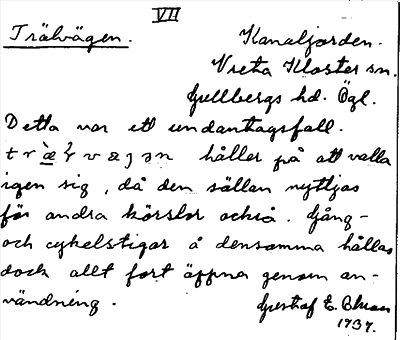 VII
Trälvägen.
Kanaljorden.
Vreta Kloster sn.
Gullbergs hd. Ögl.
Detta var ett undantagsfall.
håller på att valla
igen sig, då den sällan nyttjas
för andra körslor också. Gång-
och cykelstigar å densamma hållas
dock allt fort öppna genom an-
vändning.
Gustaf E.
1937.